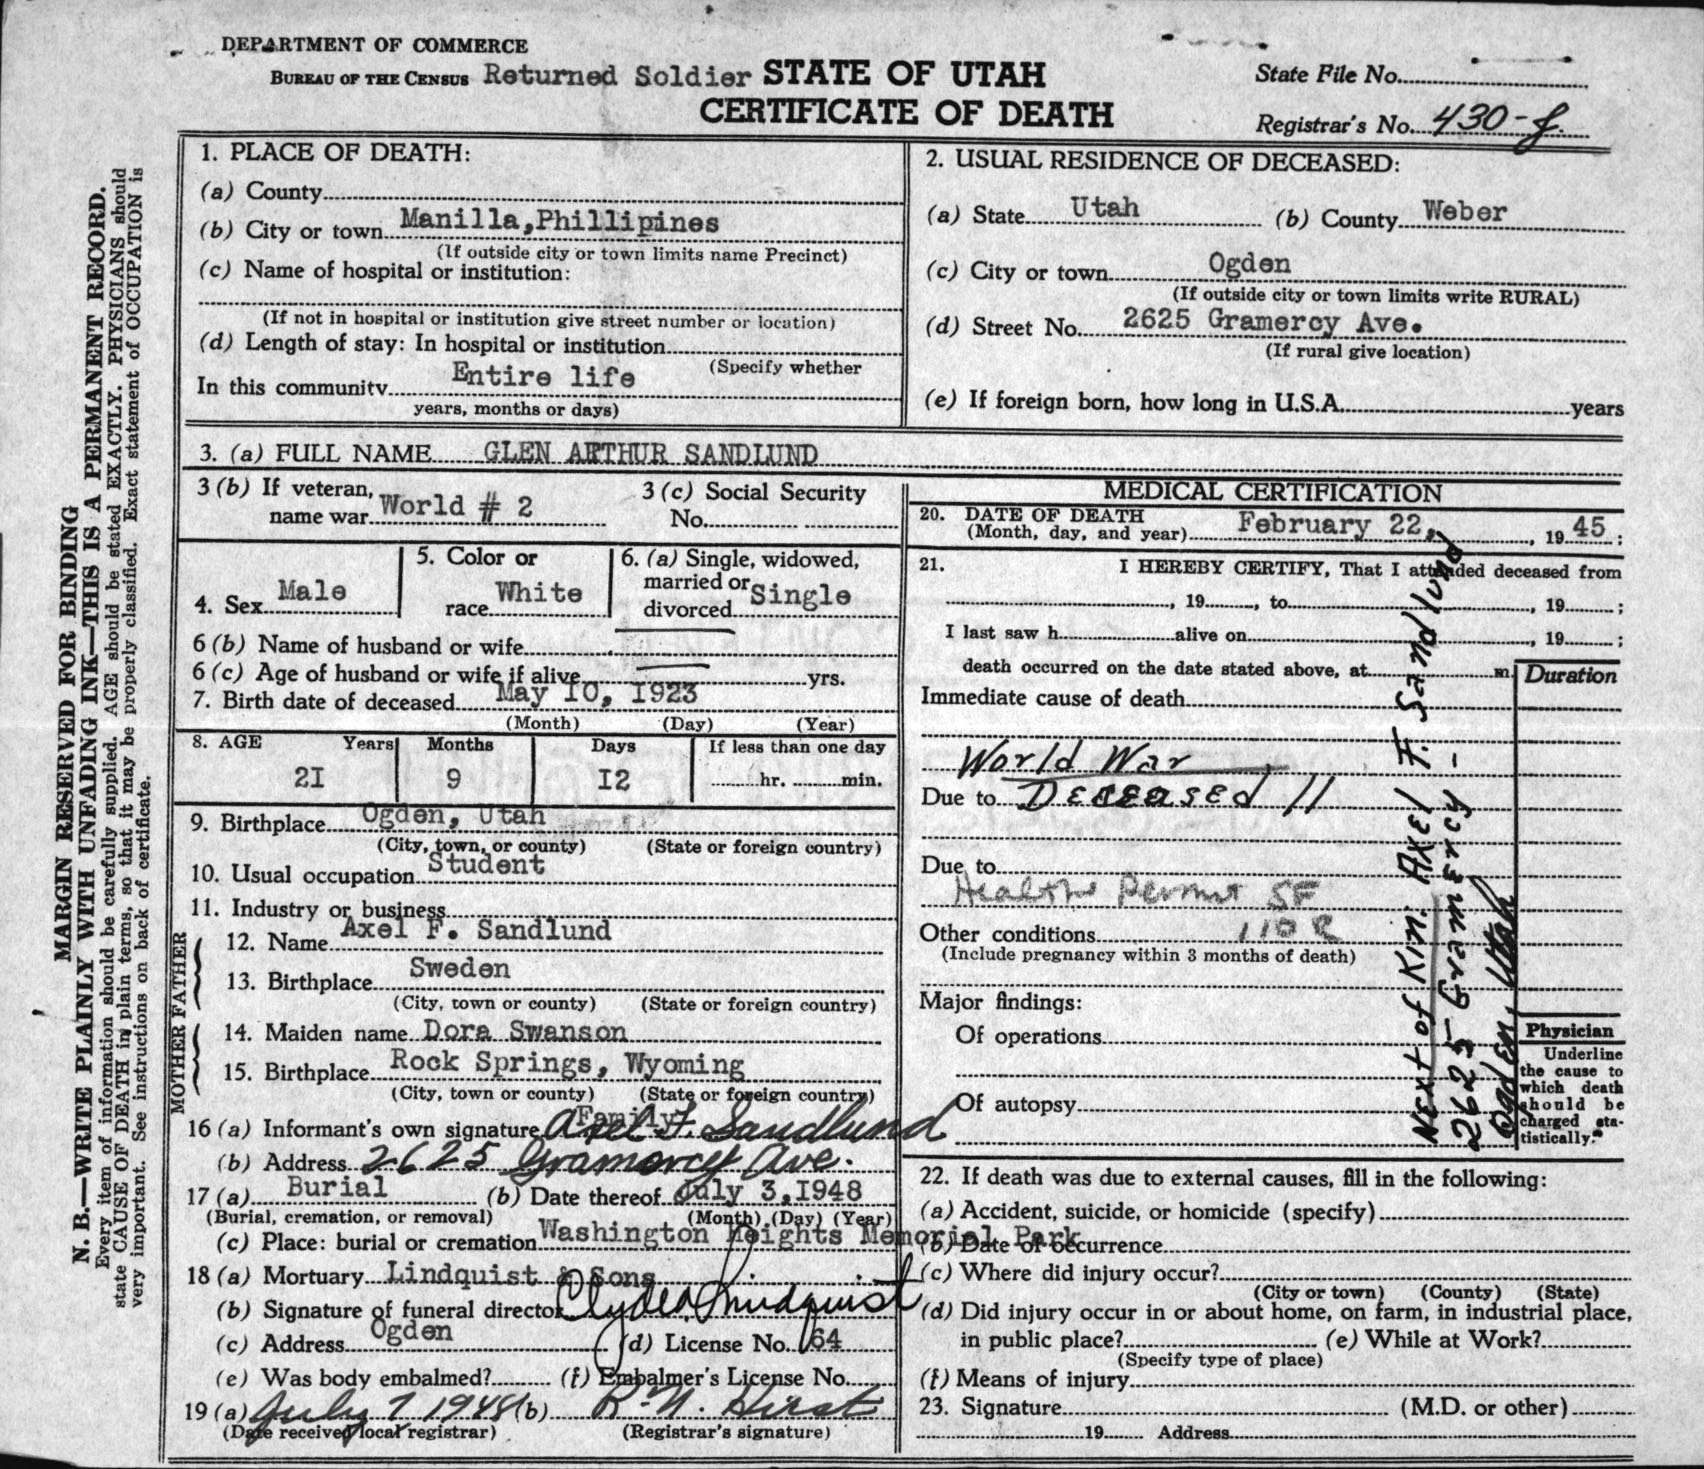 DEPARTMENT OF COMMERCE
BUREAU OF THE CENSUS Returned Soldier STATE OF UTAH
CERTIFICATE OF DEATH
State File No.
Registrar's No. 430-f
MARGIN RESERVED FOR BINDING
N. B.—WRITE PLAINLY WITH UNFADING INK—THIS IS A PERMANENT RECORD.
Every item of information should be carefully supplied. AGE should be stated EXACTLY. PHYSICIANS should
state CAUSE OF DEATH in plain terms, so that it may be properly classified. Exact statement of OCCUPATION is
very important. See instructions on back of certificate.
1. PLACE OF DEATH:
(a) County
(b) City or town Manilla,Phillipines
(If outside city or town limits name Precinct)
(c) Name of hospital or institution:
(If not in hospital or institution give street number or location)
(d) Length of stay: In hospital or institution
(Specify whether
In this community Entire life
years, months or days)
2. USUAL RESIDENCE OF DECEASED:
(a) State Utah (b) County Weber
(c) City or town Ogden
(If outside city or town limits write RURAL)
(d) Street No. 2625 Gramercy Ave.
(If rural give location)
(e) If foreign born, how long in U.S.A. years
3. (a) FULL NAME GLEN ARTHUR SANDLUND
3 (b) If veteran,
name war World # 2
3 (c) Social Security
No.
4. Sex Male
5. Color or
race White
6. (a) Single, widowed,
married or
divorced Single
6 (b) Name of husband or wife
6 (c) Age of husband or wife if alive yrs.
7. Birth date of deceased May I0, I923
(Month) (Day) (Year)
8. AGE Years Months Days If less than one day
2I 9 I2 hr. min.
9. Birthplace Ogden, Utah
(City, town, or county) (State or foreign country)
10. Usual occupation Student
11. Industry or business
FATHER
12. Name Axel F. Sandlund
13. Birthplace Sweden
(City, town or county) (State or foreign country)
MOTHER
14. Maiden name Dora Swanson
15. Birthplace Rock Springs, Wyoming
(City, town or county) (State or foreign country)
Family
16 (a) Informant's own signature Axel F. Sandlund
(b) Address 2625 Gramercy Ave.
17 (a) Burial (b) Date thereof July 3,I948
(Burial, cremation, or removal) (Month) (Day) (Year)
(c) Place: burial or cremation Washington Heights Memorial Park
18 (a) Mortuary Lindquist & Sons
(b) Signature of funeral director Clyde A Lindquist
(c) Address Ogden (d) License No. 64
(e) Was body embalmed? (f) Embalmer's License No.
19 (a) July 7 1948 (b) R. N. Hirst
(Date received local registrar) (Registrar's signature)
MEDICAL CERTIFICATION
20. DATE OF DEATH
(Month, day, and year) February 22, , 19 45 ;
21. I HEREBY CERTIFY, That I attended deceased from
, 19 , to , 19 ;
I last saw h alive on , 19 ;
death occurred on the date stated above, at m.
Duration
Immediate cause of death
World War
Due to Deceased 11
Due to
Health Permit SF
Other conditions 110 R
(Include pregnancy within 3 months of death)
Major findings:
Of operations
Of autopsy
Next of Kin: Axel F. Sandlund
2625 Gramercy -
Ogden, Utah
Physician
Underline
the cause to
which death
should be
charged sta-
tistically.
22. If death was due to external causes, fill in the following:
(a) Accident, suicide, or homicide (specify)
(b) Date of occurrence
(c) Where did injury occur?
(City or town) (County) (State)
(d) Did injury occur in or about home, on farm, in industrial place,
in public place? (e) While at Work?
(Specify type of place)
(f) Means of injury
23. Signature (M.D. or other)
19 Address